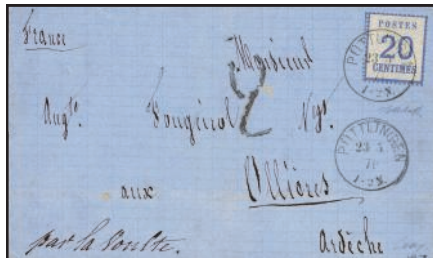 France
POSTES
20
CENTIMES
Monsieur
2
Aug^te. Fougeirol Ng^t.
PÜTTLINGEN
23 3
71
1-2N.
aux Ollières
par la Voulte.
Ardèche